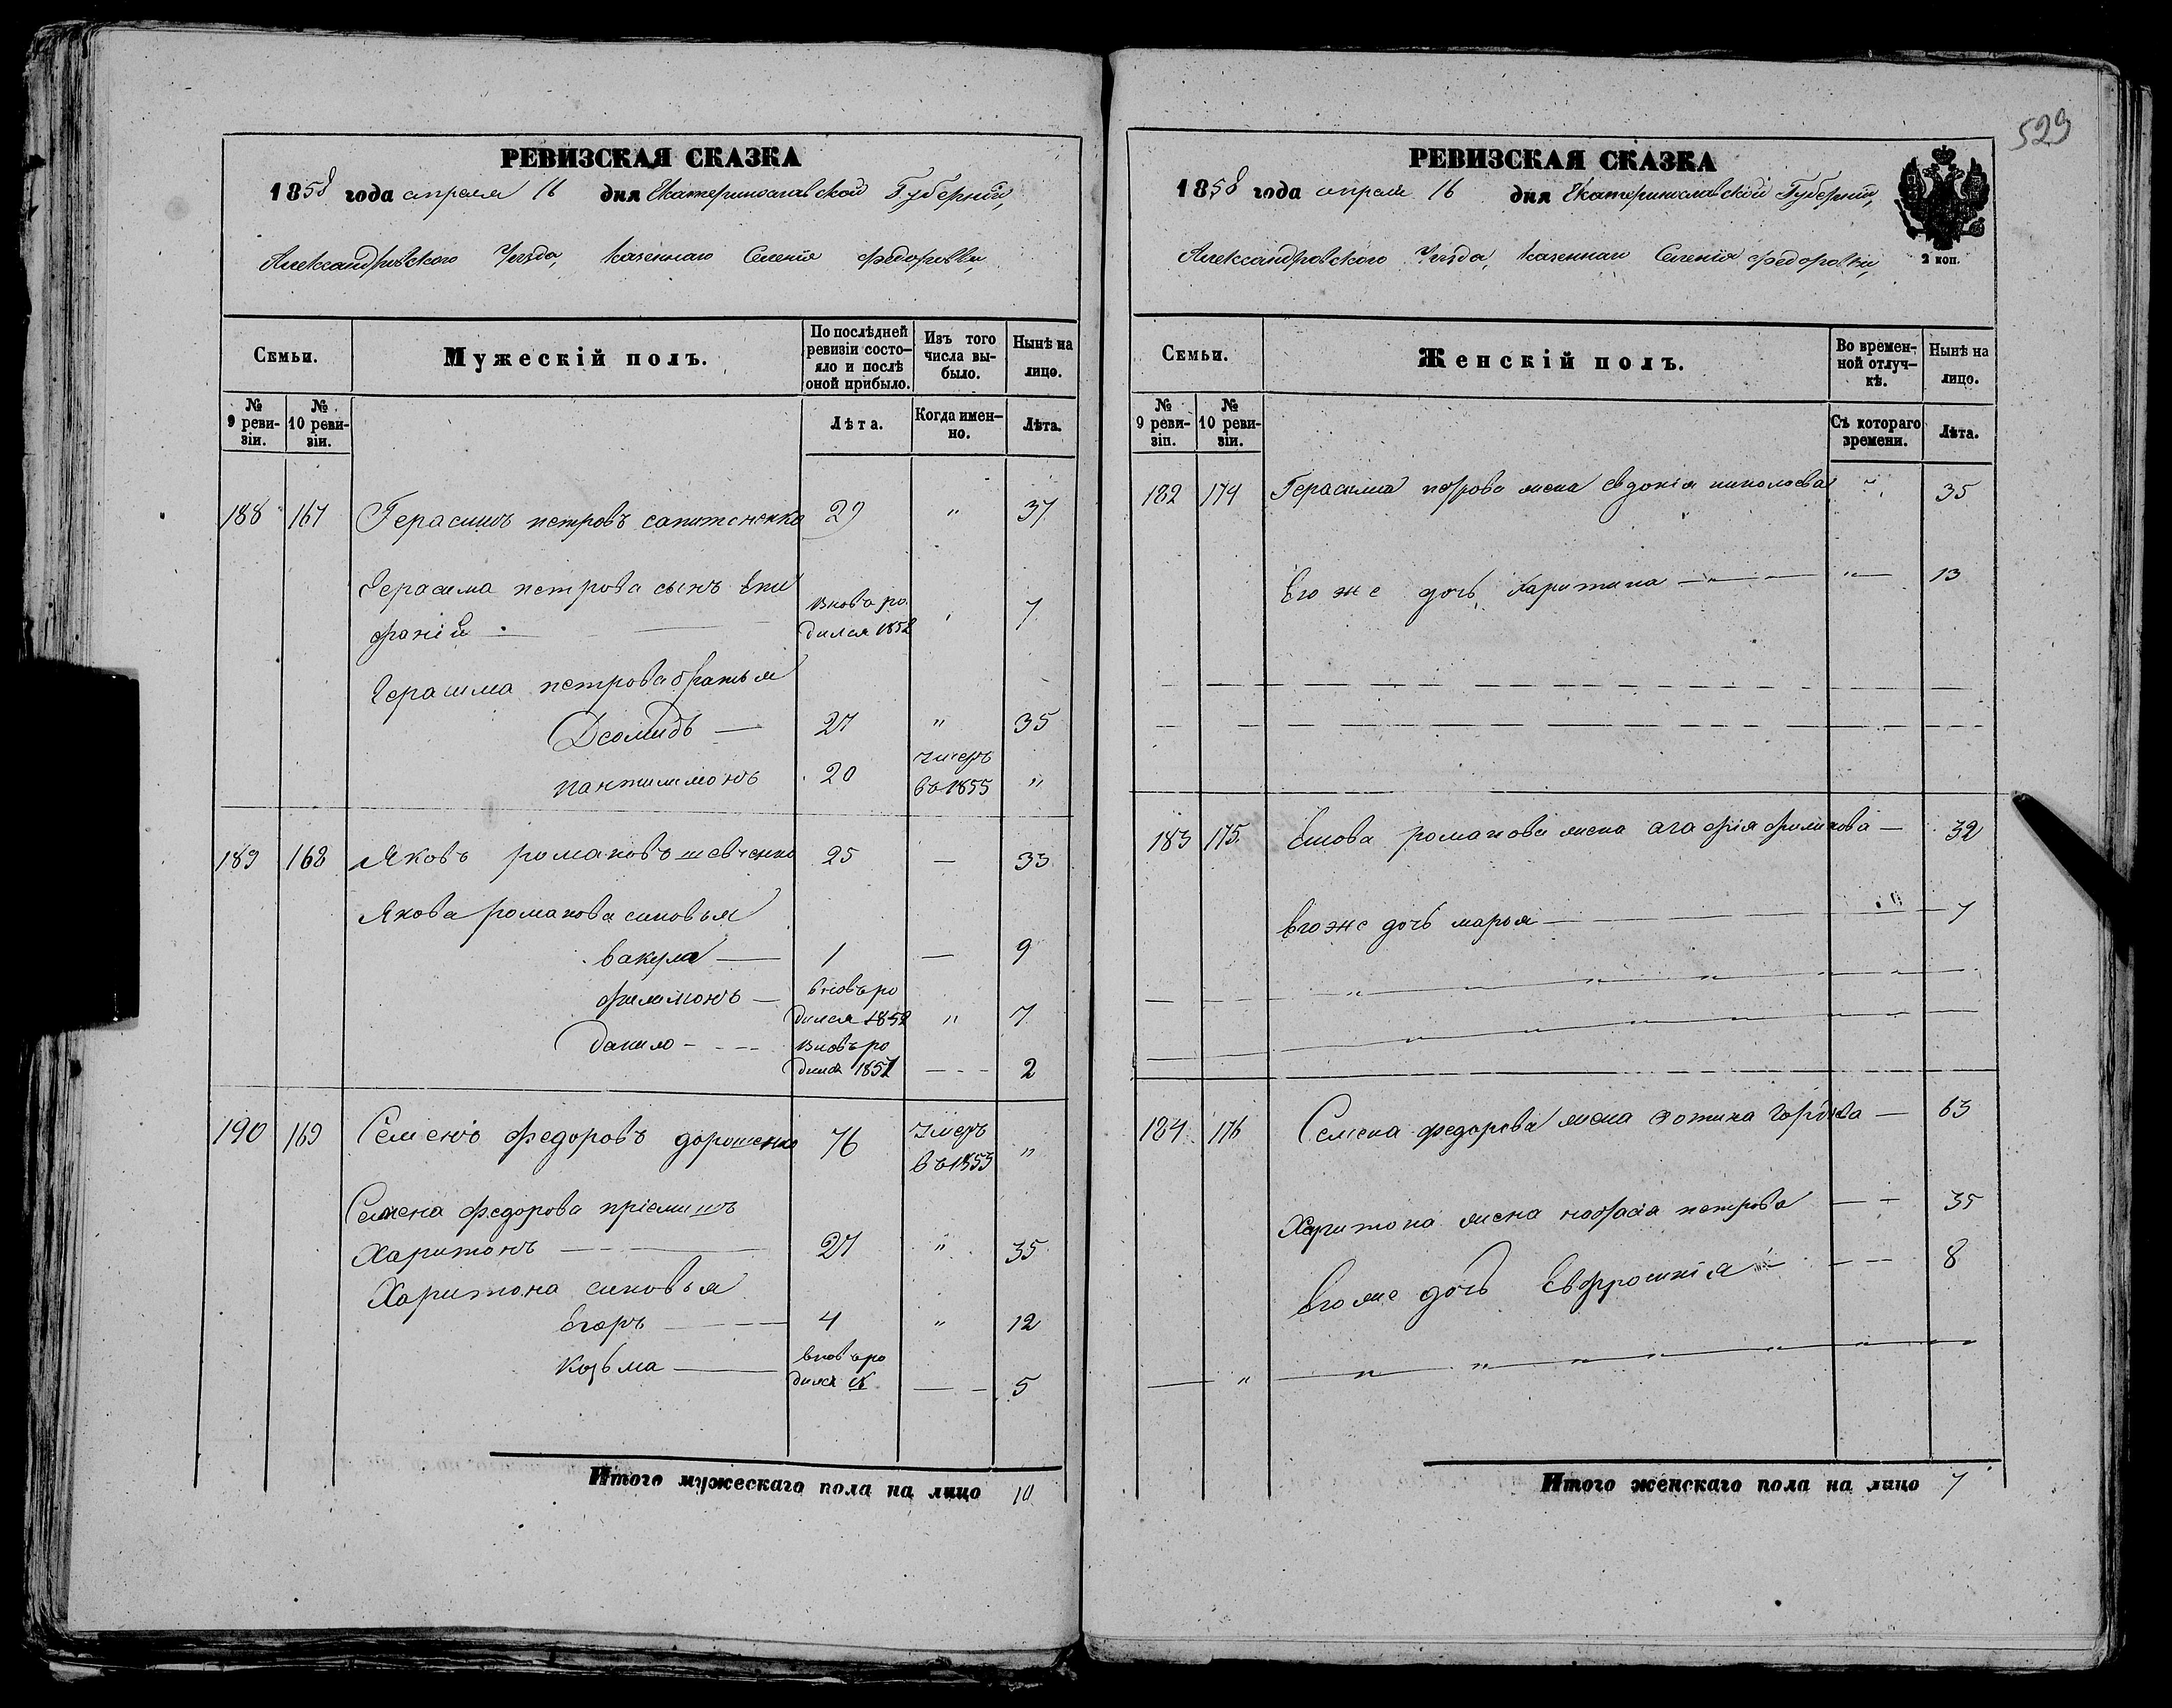 529
РЕВИЗСКАЯ СКАЗКА
1858 года апреля 16 дня Екатеринославской Губерніи,
Александровского Уезда, казеннаго Селенія федоровки,
Семьи.
Мужескій полъ.
По послѣдней ревизіи состояло и послѣ оной прибыло.
Изъ того числа выбыло.
Нынѣ на лицо.
№ 9 ревизіи.
№ 10 ревизіи.
Лѣта.
Когда именно.
Лѣта.
188 167 Герасимъ петровъ 29 " 37
Герасима петрова сынъ Епи
фаній вновь ро
дился 1852 7
Герасима петрова братья
Деомидъ 27 " 35
пантилимонъ 20 умеръ
въ 1855 "
189 168 Яковъ романовъ шевченко 25 — 33
Якова романова сыновья
вакула 1 — 9
филимонъ вновь ро
дился 1852 " 7
данило вновь ро
дился 1857 2
190 169 Семенъ федоровъ дорошенко 76 умеръ
въ 1853 "
Семена федорова пріемишъ
Харитонъ 27 " 35
Харитона сыновья
Егоръ 4 " 12
Козьма вновь ро
дился 5
Итого мужескаго пола на лицо 10
РЕВИЗСКАЯ СКАЗКА
1858 года апреля 16 дня Екатеринославской Губерніи,
Александровского Уезда, казеннаго Селенія федоровки,
2 коп.
Семьи.
Женскій полъ.
Во временной отлучкѣ.
Нынѣ на лицо.
№ 9 ревизіи.
№ 10 ревизіи.
Съ котораго времени.
Лѣта.
182 174 Герасима петрова жена Евдокія николаева 35
Его же дочь Харитина 13
183 175 Якова романова жена агафія 32
Его же дочь марья 7
184 176 Семена федорова жена фотина 63
Харитона жена петрова 35
Его же дочь Евфросинія 8
Итого женскаго пола на лицо 7